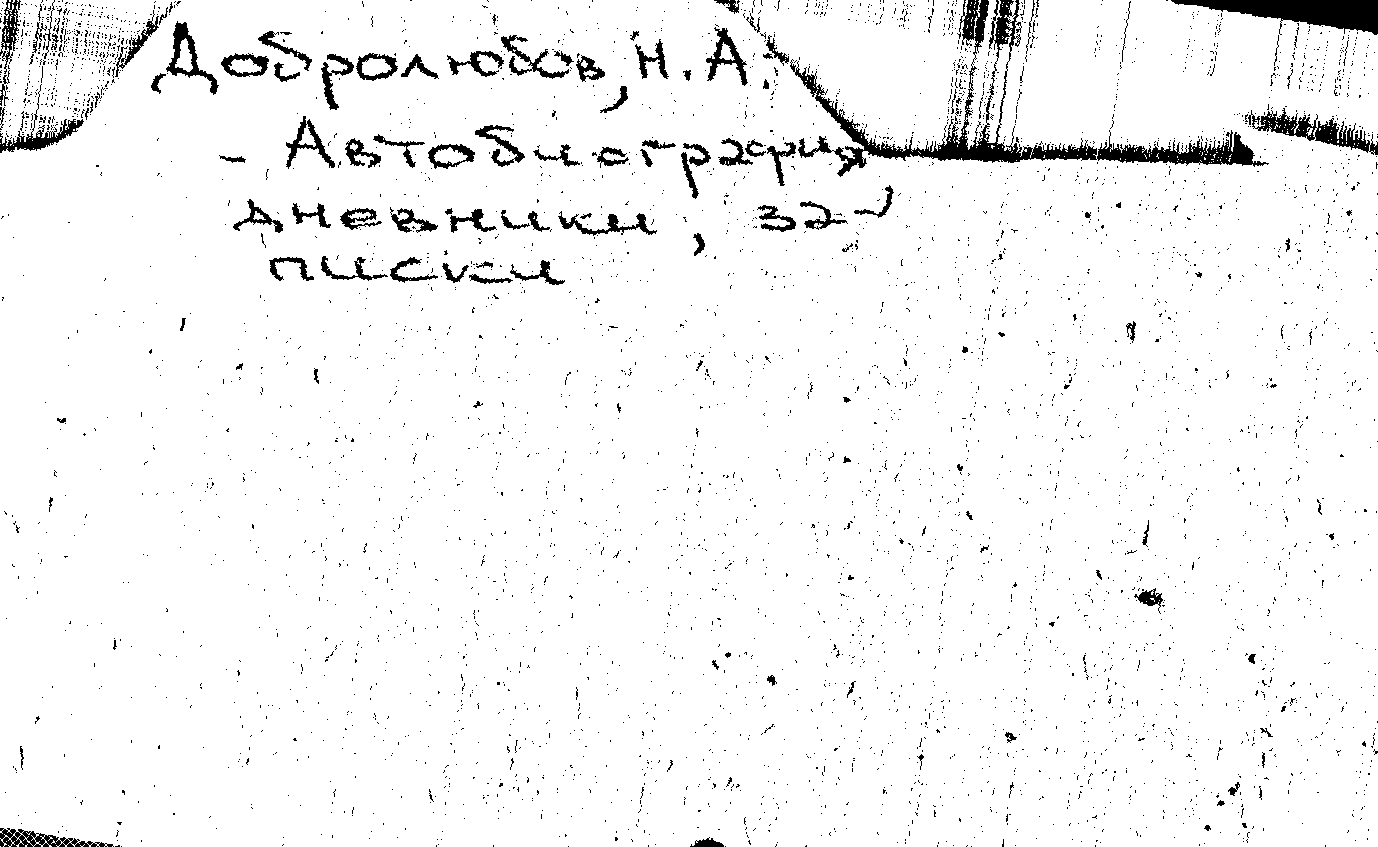 Добролюбов, Н. А.
- Автобиография,
дневники, за-
писки